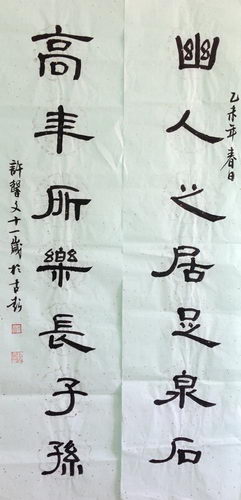 乙未年春日
幽人之居足泉石
高年所樂長子孫
許馨文十一歲於古彭